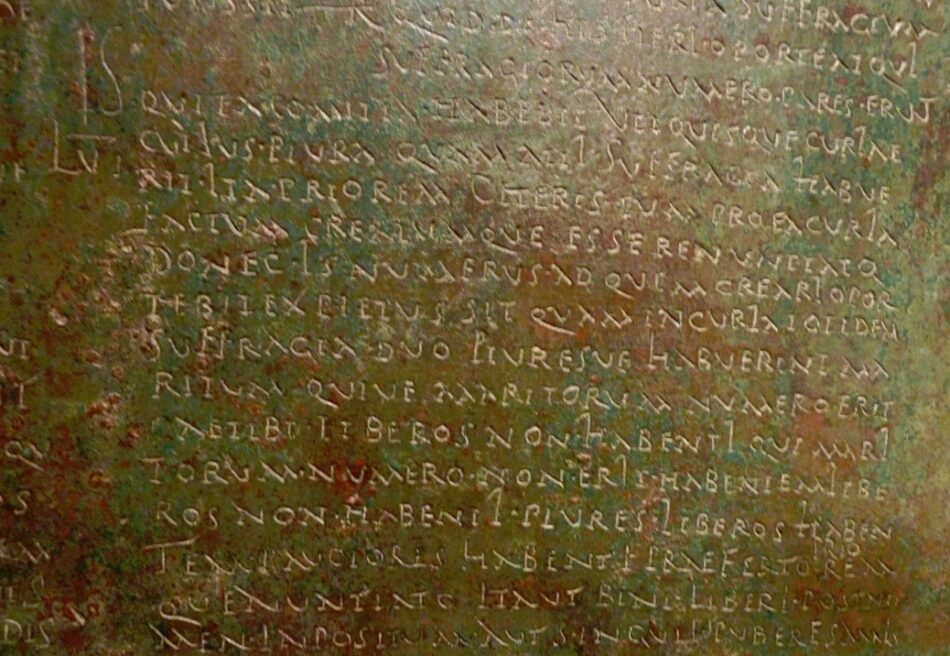 SUFFRAGIUM
R QUID DE HIS FIERI OPORTEAT QUI
SUFFRAGIORUM NUMERO PARES ERUNT
IS
QUI EA COMITIA HABEBIT UTI QUISQUE CURIAE
LVI CUIUS PLURA QUAM ALII SUFFRAGIA HABUE
RIT ITA PRIOREM CETERIS EUM PRO EA CURIA
FACTUM CREATUMQUE ESSE RENUNTIATO
DONEC IS NUMERUS AD QUEM CREARI OPOR
TEBIT EXPLETUS SIT QUAM IN CURIA TOTIDEM
SUFFRAGIA DUO PLURESVE HABUERINT MA
RITUM QUIVE MARITORUM NUMERO ERIT
CAELIBI LIBEROS NON HABENTI QUI MARI
TORUM NUMERO NON ERIT HABENTEM LIBE
ROS NON HABENTI PLURES LIBEROS HABEN
TEM PAUCIORES HABENTI PRAEFERTO PRIOREM
QUE NUNTIATO ITA UT BINI LIBERI POST NO
MEN INPOSITUM AUT SINGULI PUBERES AMIS